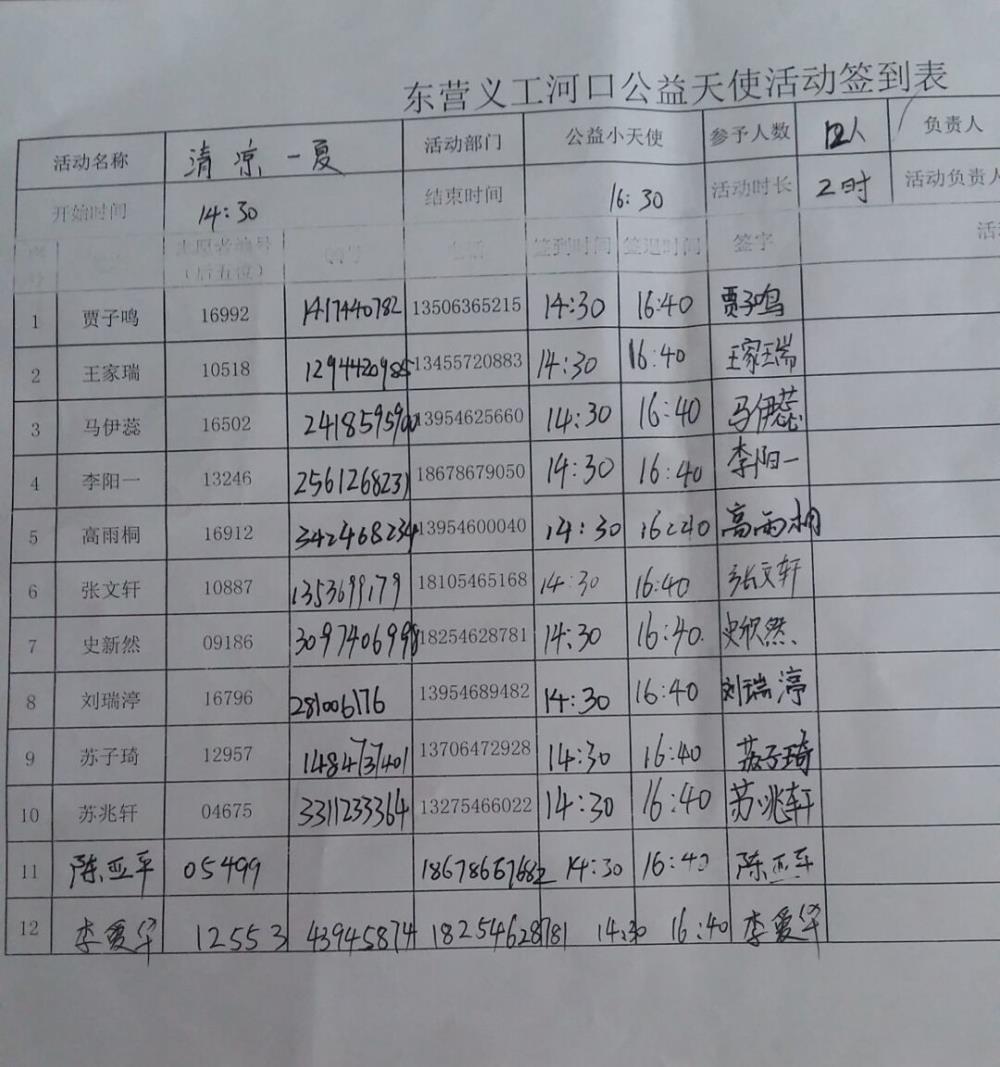 东营义工河口公益天使活动签到表
活动名称 清凉一夏 活动部门 公益小天使 参予人数 12人 负责人
开始时间 14:30 结束时间 16:30 活动时长 2时 活动负责人
志愿者编号（后五位） QQ号 电话 签到时间 签退时间 签字
1 贾子鸣 16992 1417440782 13506365215 14:30 16:40 贾子鸣
2 王家瑞 10518 1294420985 13455720883 14:30 16:40 王家瑞
3 马伊蕊 16502 2418595900 13954625660 14:30 16:40 马伊蕊
4 李阳一 13246 2561268231 18678679050 14:30 16:40 李阳一
5 高雨桐 16912 3424682234 13954600040 14:30 16:40 高雨桐
6 张文轩 10887 1353699179 18105465168 14:30 16:40 张文轩
7 史新然 09186 3097406998 18254628781 14:30 16:40 史欣然
8 刘瑞渟 16796 281006176 13954689482 14:30 16:40 刘瑞渟
9 苏子琦 12957 1484737401 13706472928 14:30 16:40 苏子琦
10 苏兆轩 04675 3311233364 13275466022 14:30 16:40 苏兆轩
11 陈亚平 05499 14:30 16:40 陈亚平
12 李爱华 12553 43945874 18254628781 14:30 16:40 李爱华